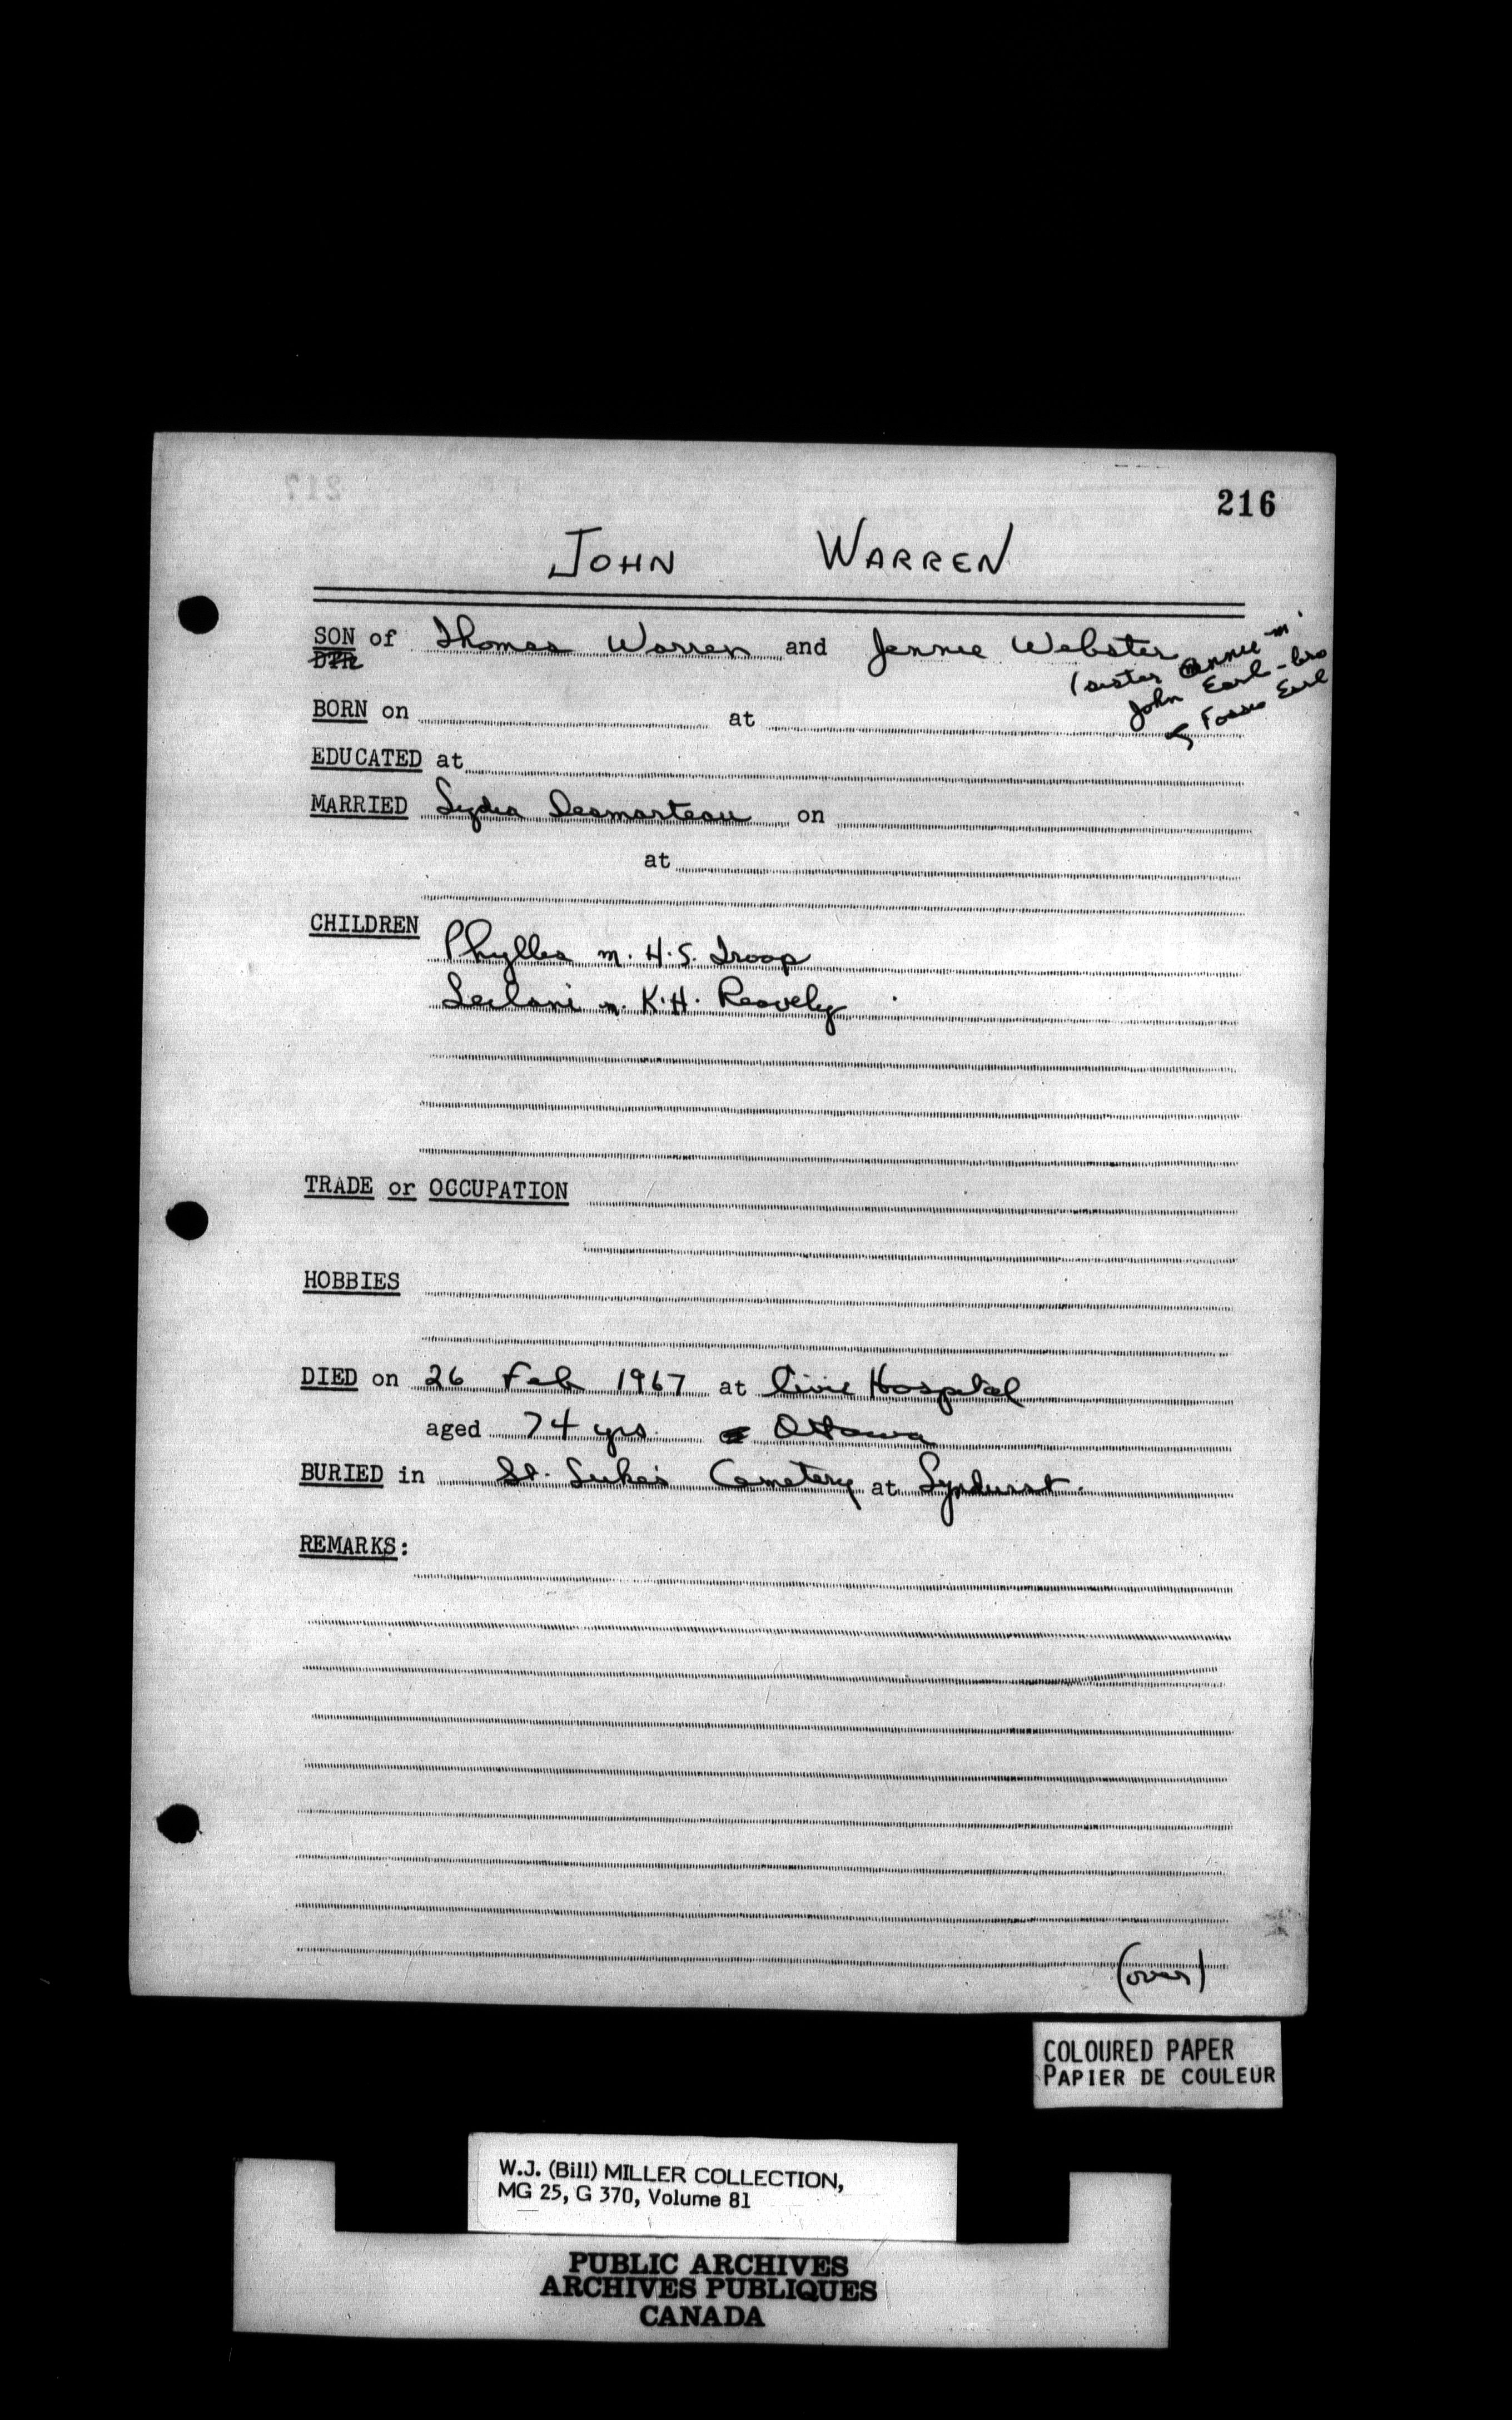 216
JOHN WARREN
SON of Thomas Warren and Jennie Webster
DTR
(sister Annie m.
John Earl - bro
of Earl
BORN on at
EDUCATED at
MARRIED Lydia Desmarteau on
at
CHILDREN
Phyllis m. H.S. Troop
Leilani m. K.H. Reavely
TRADE or OCCUPATION
HOBBIES
DIED on 26 Feb 1967 at Civic Hospital
aged 74 yrs. Ottawa
BURIED in St. Luke's Cemetery at Lyndhurst.
REMARKS:
(over)
COLOURED PAPER
PAPIER DE COULEUR
W.J. (Bill) MILLER COLLECTION,
MG 25, G 370, Volume 81
PUBLIC ARCHIVES
ARCHIVES PUBLIQUES
CANADA